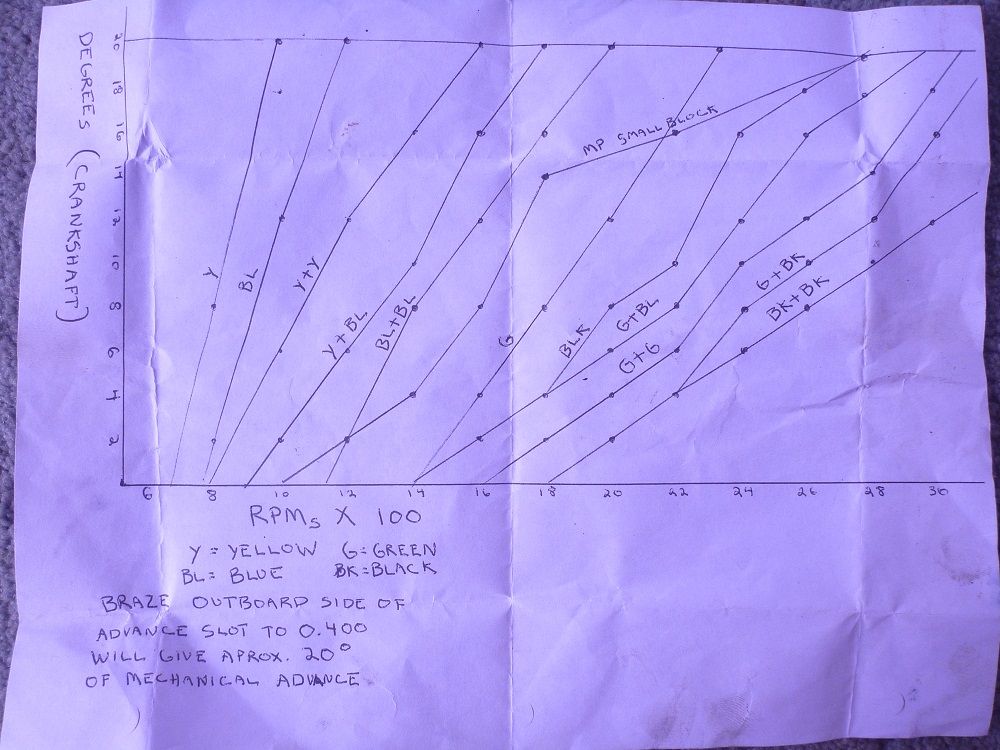 DEGREES (CRANKSHAFT)
20
18
16
14
12
10
8
6
4
2
MP SMALL BLOCK
Y
BL
Y+Y
Y+BL
BL+BL
G
BLK
G+BL
G+G
G+BK
BK+BK
6 8 10 12 14 16 18 20 22 24 26 28 30
RPMS X 100
Y=YELLOW G=GREEN
BL=BLUE BK=BLACK
BRAZE OUTBOARD SIDE OF
ADVANCE SLOT TO 0.400
WILL GIVE APROX. 20°
OF MECHANICAL ADVANCE